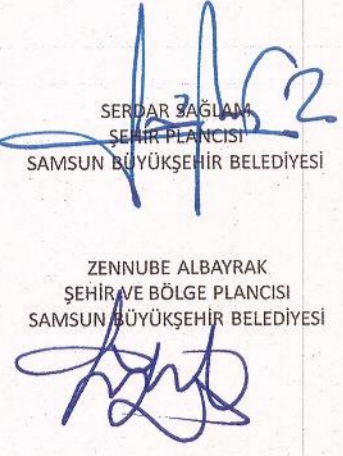 SERDAR SAĞLAM
ŞEHİR PLANCISI
SAMSUN BÜYÜKŞEHİR BELEDİYESİ
ZENNUBE ALBAYRAK
ŞEHİR VE BÖLGE PLANCISI
SAMSUN BÜYÜKŞEHİR BELEDİYESİ